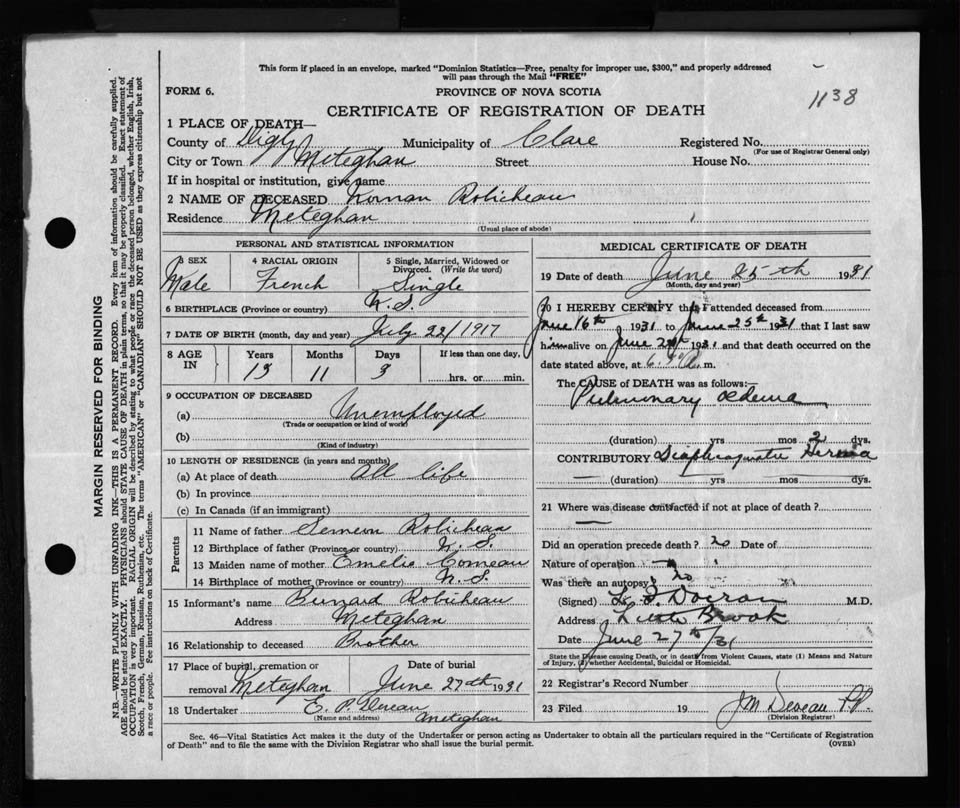 This form if placed in an envelope, marked "Dominion Statistics—Free, penalty for improper use, $300," and properly addressed
will pass through the Mail "FREE"
FORM 6.
PROVINCE OF NOVA SCOTIA
1138
CERTIFICATE OF REGISTRATION OF DEATH
1 PLACE OF DEATH—
County of Digby Municipality of Clare Registered No.
(For use of Registrar General only)
City or Town Meteghan Street House No.
If in hospital or institution, give name
2 NAME OF DECEASED Norman Robicheau
Residence Meteghan
(Usual place of abode)
PERSONAL AND STATISTICAL INFORMATION
3 SEX 4 RACIAL ORIGIN 5 Single, Married, Widowed or
Divorced. (Write the word)
Male French Single
6 BIRTHPLACE (Province or country) N. S.
7 DATE OF BIRTH (month, day and year) July 22/1917
8 AGE IN Years Months Days If less than one day,
13 11 3 hrs. or min.
9 OCCUPATION OF DECEASED
(a) Unemployed
(Trade or occupation or kind of work)
(b)
(Kind of industry)
10 LENGTH OF RESIDENCE (in years and months)
(a) At place of death All life
(b) In province
(c) In Canada (if an immigrant)
Parents
11 Name of father Semeon Robicheau
12 Birthplace of father (Province or country) N. S.
13 Maiden name of mother Emelie Comeau
14 Birthplace of mother (Province or country) N. S.
15 Informant's name Bernard Robicheau
Address Meteghan
16 Relationship to deceased Brother
17 Place of burial, cremation or Date of burial
removal Meteghan June 27th 1931
18 Undertaker E. P. Deveau
(Name and address) Meteghan
MEDICAL CERTIFICATE OF DEATH
19 Date of death June 25th 1931
(Month, day and year)
20 I HEREBY CERTIFY that I attended deceased from
June 16th 1931 to June 25th 1931 that I last saw
him alive on June 1931 and that death occurred on the
date stated above, at 6. m.
The CAUSE of DEATH was as follows:—
Pulmonary œdema
(duration) yrs mos 2 dys.
CONTRIBUTORY Diaphragmatic Hernia
(duration) yrs mos dys.
21 Where was disease contracted if not at place of death?
Did an operation precede death? no Date of
Nature of operation
Was there an autopsy? no
(Signed) L. F. Doiron M.D.
Address Little Brook
Date June 27th/31
State the Disease causing Death, or in death from Violent Causes, state (1) Means and Nature
of Injury, (2) whether Accidental, Suicidal or Homicidal.
22 Registrar's Record Number
23 Filed 19 J M Deveau P.P.
(Division Registrar)
Sec. 46—Vital Statistics Act makes it the duty of the Undertaker or person acting as Undertaker to obtain all the particulars required in the "Certificate of Registration
of Death" and to file the same with the Division Registrar who shall issue the burial permit. (OVER)
MARGIN RESERVED FOR BINDING
N.B.—WRITE PLAINLY WITH UNFADING INK—THIS IS A PERMANENT RECORD. Every item of information should be carefully supplied.
AGE should be stated EXACTLY. PHYSICIANS should STATE CAUSE OF DEATH in plain terms, so that it may be properly classified. Exact statement of
OCCUPATION is very important. RACIAL ORIGIN will be described by stating to what people or race the deceased person belonged, whether English, Irish,
Scotch, French, German, Russian, Ruthenian, etc. The terms "AMERICAN" or "CANADIAN" SHOULD NOT BE USED as they express citizenship but not
a race or people. See instructions on back of Certificate.